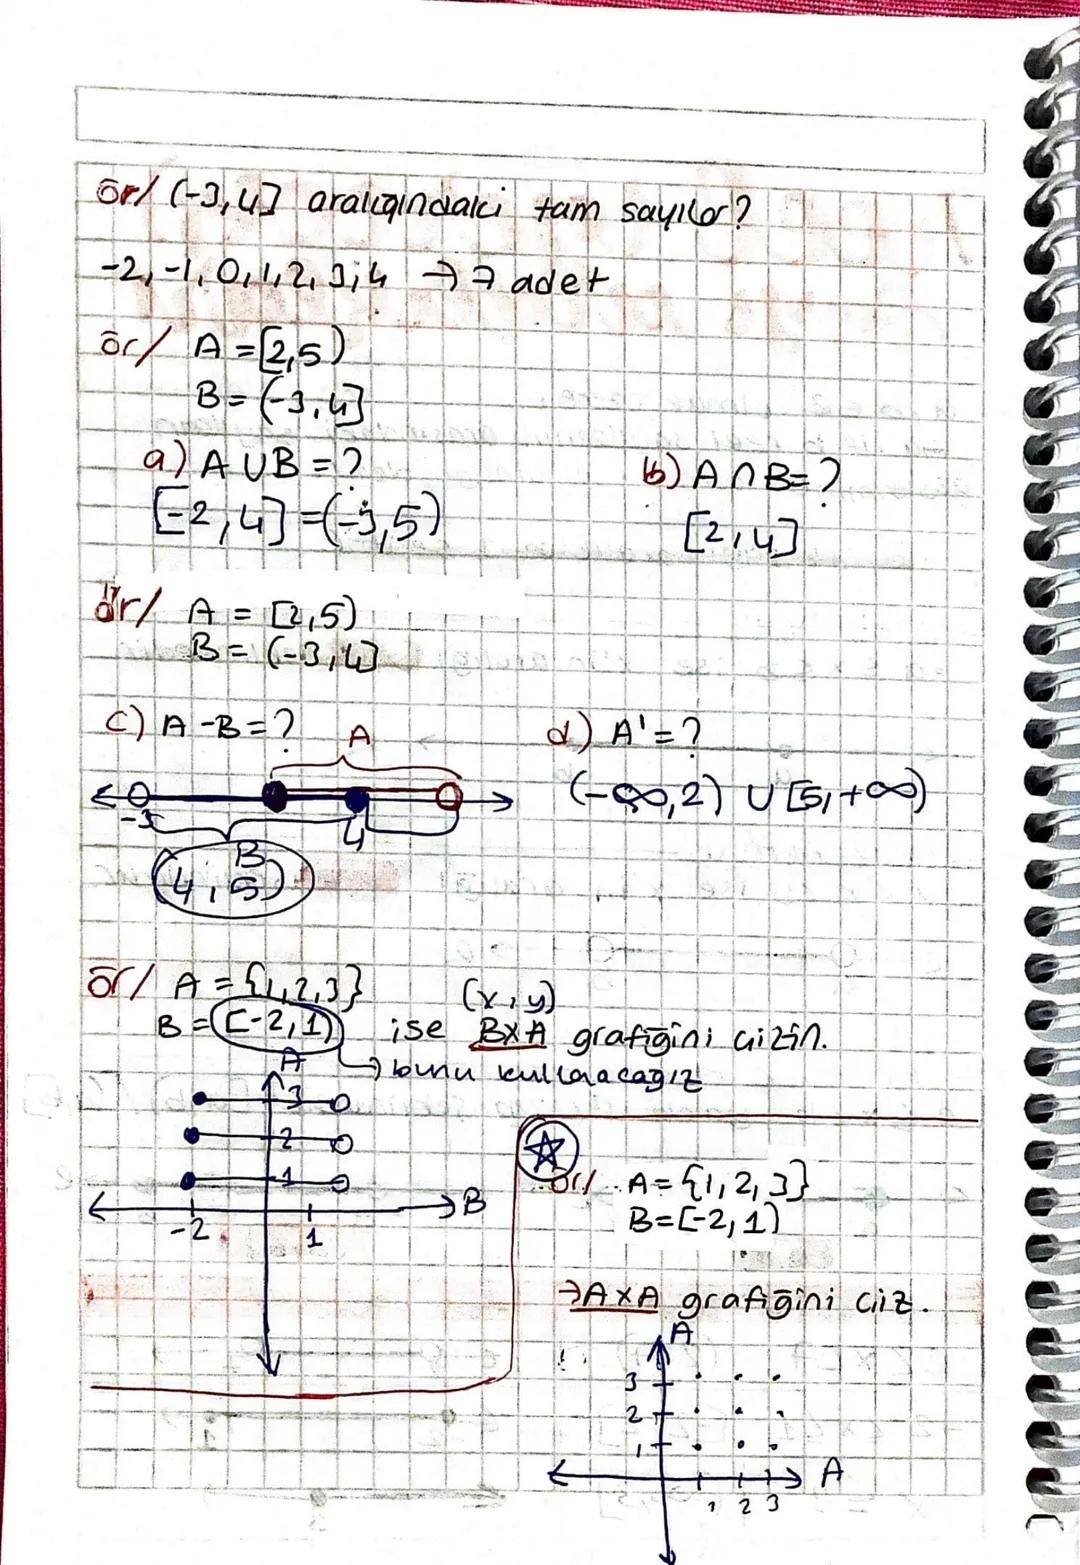 ör/ (-3,4] aralığındaki tam sayılar?
-2,-1,0,1,2,3,4 → 7 adet
ör/ A = [2,5)
B = (-3,4]
a) A ∪ B = ?
[-2,4] = (-3,5)
b) A ∩ B = ?
[2,4]
ör/ A = [2,5)
B = (-3,4]
c) A - B = ?
A
-3
4
B
(4,5)
d) A' = ?
(-∞,2) ∪ [5,+∞)
ör/ A = {1,2,3}
(x,y)
B = [-2,1) ise BXA grafiğini çizin.
→ bunu kullanacağız
A
3
2
1
B
-2 1
ör/ A = {1,2,3}
B = [-2,1)
→ AXA grafiğini çiz.
A
3
2
1
A
1 2 3